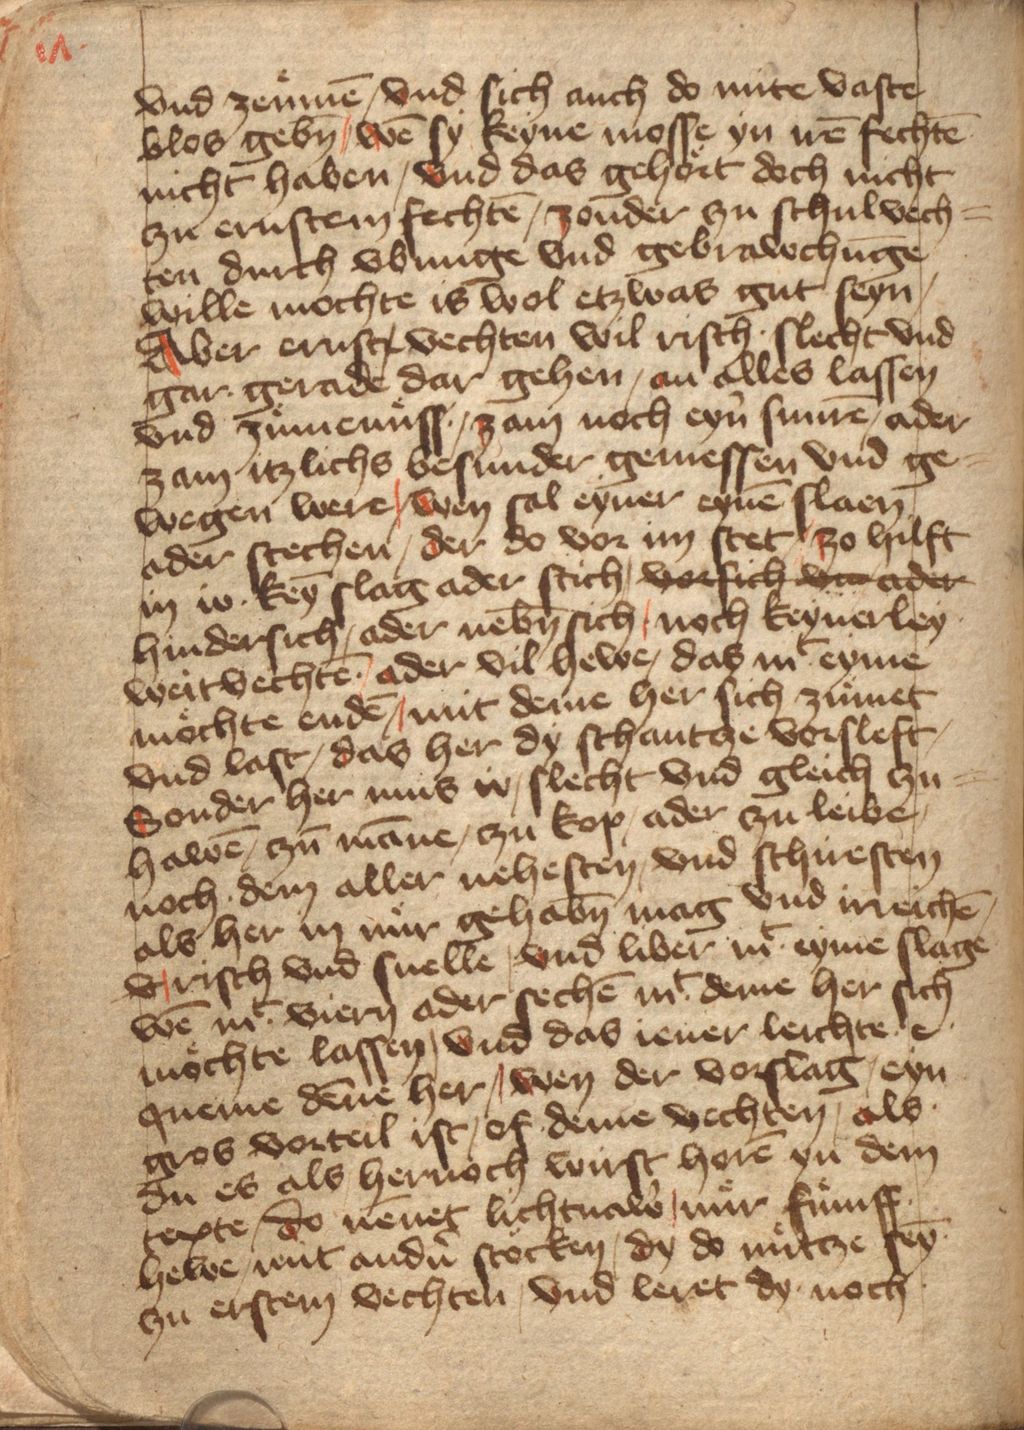 vnd zeümē / vnd sich auch do mite vaste
blos gebn̄ / wē sy keyne mosse yn irē fechtē
nicht haben / vnd das gehört doch nicht
zu ernstem fechtē / zonder zu schulvech=
ten durch vbunge vnd gebrawchunge
wille mochte is wol etzwas gut seyn /
Aber ernst vechten wil risch · slecht vnd
gar · gerade dar gehen / an alles lassen
vnd zümenüss · / zam noch eyn̄ snurē / ader
zam itzlichs besunder gemessen vnd ge=
wegen were / wen sal eyner eynē slaen
ader stechen / der do vor im stet / zo hilft
in io · key̅ slag ader stich / vorsich ader
hindersich / ader nebn̄ sich / noch keynerley
weitvechtē · ader vil hewe / das mt · eyme
möchte endē / mit deme her sich zümet
vnd last / das her dy schantze vorsleft /
Sonder her mus io / slecht vnd gleich zu=
hawē / zū māne / zu kop / ader zu leibe /
noch · dem aller nehesten vnd schiresten
als her in nür gehabn̄ mag vnd irreichē /
risch vnd snelle / vnd liber mt · eyme slage
wē mt · viern ader sechē mt · deme her sich
möchte lassen / vnd das iener leichte · e ·
queme dēne her / wen der vorslag / eyn
gros vorteil ist / of · deme vechten / als ·
du es als hernoch wirst horē yn dem
texte / do nēnet lichtnaw̄ / nür fümff ·
hewe / mit andn̄ stöcken / dy do nütcze sey̅
zu erstem vechten / vnd leret dy · noch